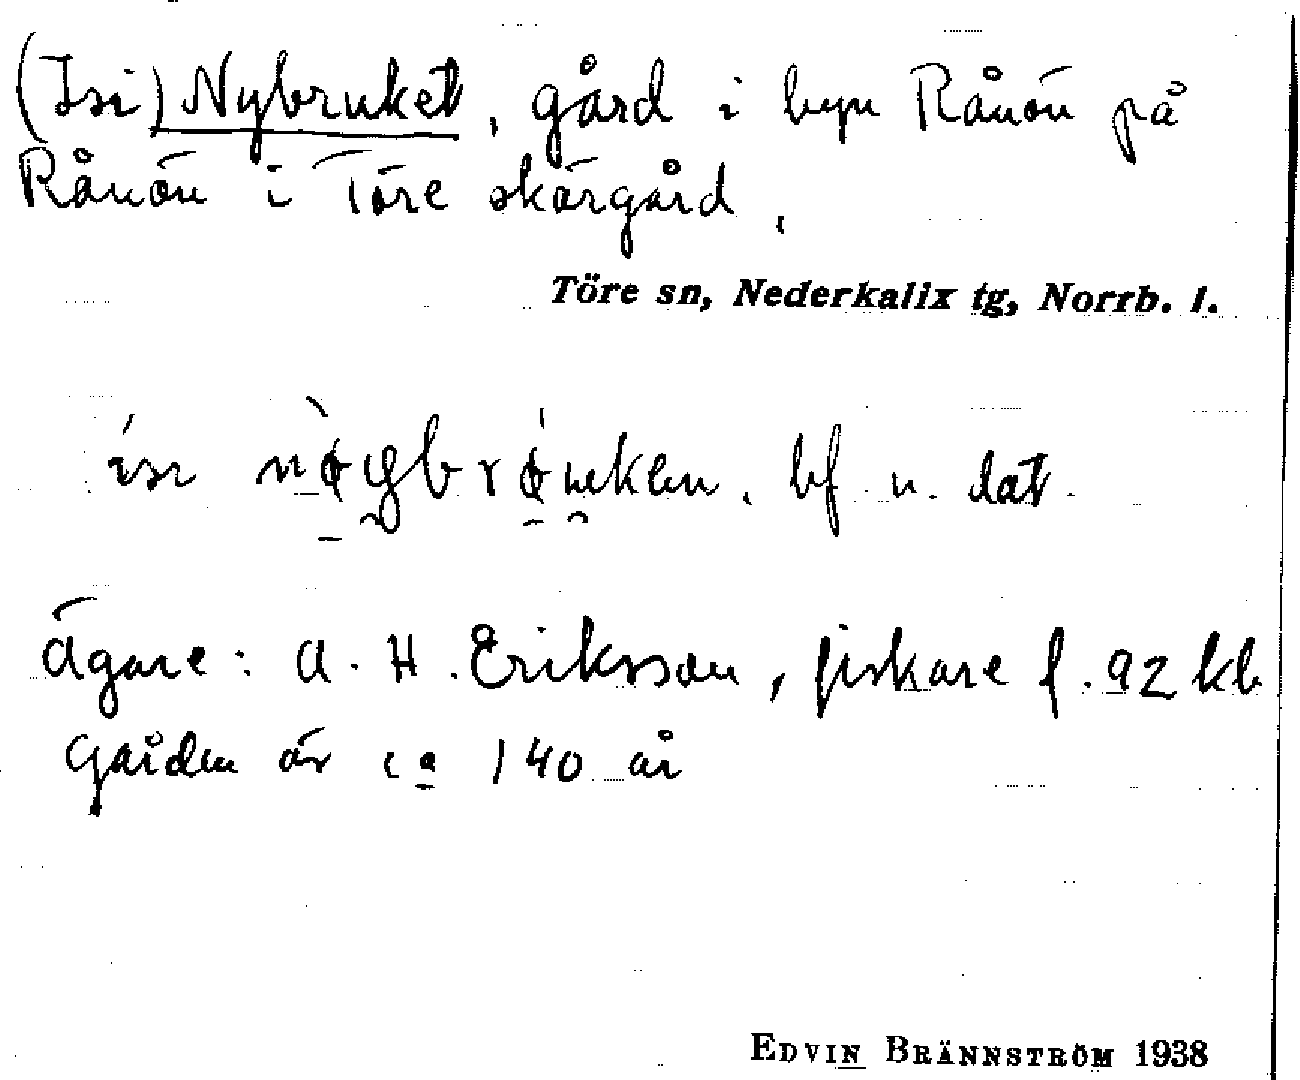 (Isi) Nybruket, gård i byn Rånön på
Rånön i Töre skärgård.
Töre sn, Nederkalix tg, Norrb. l.
bf. n. dat.
ägare: A. H. Eriksson, fiskare f. 92 kb
Gården är ca 140 år
EDVIN BRÄNNSTRÖM 1938